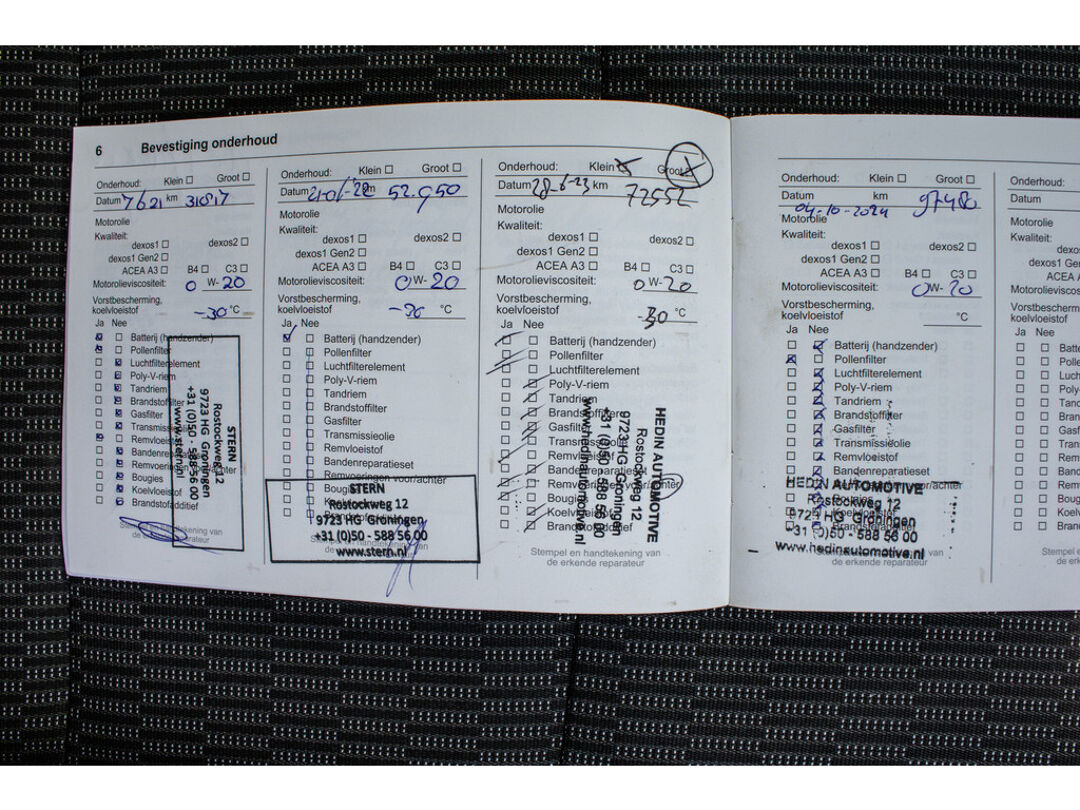 6 Bevestiging onderhoud
Onderhoud: Klein Groot
Datum 7621 km 31817
Motorolie
Kwaliteit:
dexos1 dexos2
dexos1 Gen2
ACEA A3 B4 C3
Motorolieviscositeit: 0 W- 20
Vorstbescherming,
koelvloeistof -30 °C
Ja Nee
Batterij (handzender)
Pollenfilter
Luchtfilterelement
Poly-V-riem
Tandriem
Brandstoffilter
Gasfilter
Transmissieolie
Remvloeistof
Bandenreparatieset
Remvoeringen voor/achter
Bougies
Koelvloeistof
Brandstofadditief
STERN
Rostockweg 12
9723 HG Groningen
+31 (0)50 - 588 56 00
www.stern.nl
de erkende reparateur
Onderhoud: Klein Groot
Datum 21-06-'22 km 52.950
Motorolie
Kwaliteit:
dexos1 dexos2
dexos1 Gen2
ACEA A3 B4 C3
Motorolieviscositeit: 0 W- 20
Vorstbescherming,
koelvloeistof °C
Ja Nee
Batterij (handzender)
Pollenfilter
Luchtfilterelement
Poly-V-riem
Tandriem
Brandstoffilter
Gasfilter
Transmissieolie
Remvloeistof
Bandenreparatieset
Remvoeringen voor/achter
STERN
Rostockweg 12
9723 HG Groningen
+31 (0)50 - 588 56 00
www.stern.nl
de erkende reparateur
Onderhoud: Klein Groot
Datum 28-6-23 km 72552
Motorolie
Kwaliteit:
dexos1 dexos2
dexos1 Gen2
ACEA A3 B4 C3
Motorolieviscositeit: 0 W- 20
Vorstbescherming,
koelvloeistof -30 °C
Ja Nee
Batterij (handzender)
Pollenfilter
Luchtfilterelement
Poly-V-riem
Tandriem
Brandstoffilter
Gasfilter
Transmissieolie
Remvloeistof
Bandenreparatieset
Remvoeringen voor/achter
Bougies
Koelvloeistof
Brandstofadditief
HEDIN AUTOMOTIVE
Rostockweg 12
9723 HG Groningen
+31 (0)50 - 588 56 00
www.hedinautomotive.nl
Stempel en handtekening van
de erkende reparateur
Onderhoud: Klein Groot
Datum km
04-10-2024 97480
Motorolie
Kwaliteit:
dexos1 dexos2
dexos1 Gen2
ACEA A3 B4 C3
Motorolieviscositeit: 0 W- 20
Vorstbescherming,
koelvloeistof °C
Ja Nee
Batterij (handzender)
Pollenfilter
Luchtfilterelement
Poly-V-riem
Tandriem
Brandstoffilter
Gasfilter
Transmissieolie
Remvloeistof
Bandenreparatieset
HEDIN AUTOMOTIVE
Rostockweg 12
9723 HG Groningen
+31 (0)50 - 588 56 00
www.hedinautomotive.nl
de erkende reparateur
Onderhoud:
Datum
Motorolie
Kwaliteit:
Ja Nee